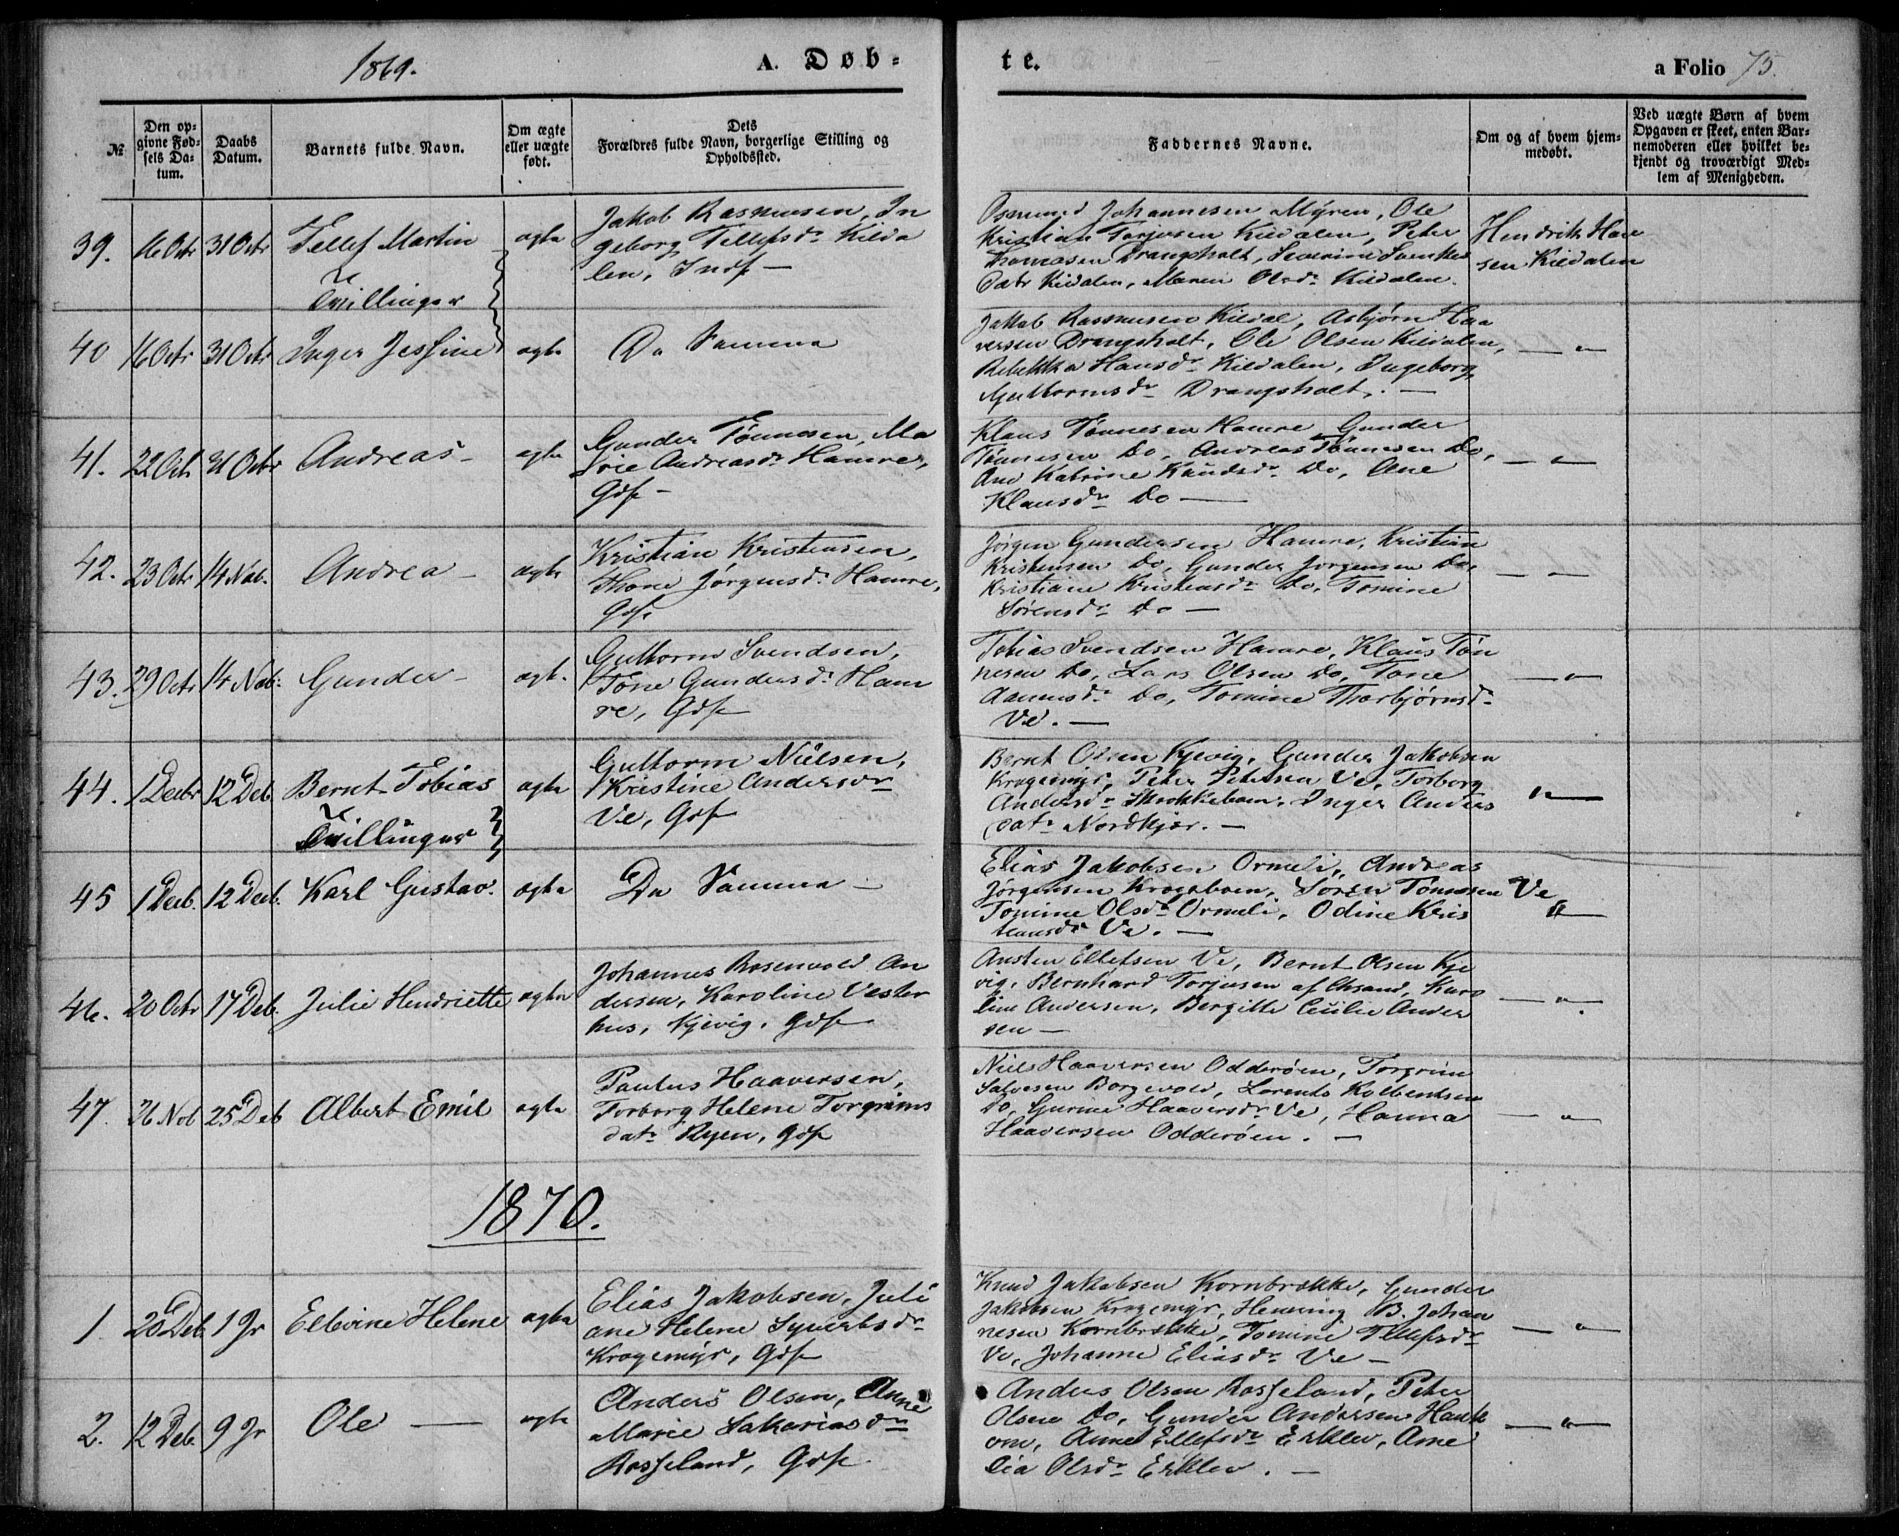 1869.
A. Døb-
te.
a Folio 75.
№
Den op-
givne Fød-
sels Da-
tum.
Daabs
Datum.
Barnets fulde Navn.
Om ægte
eller uægte
født.
Dets
Forældres fulde Navn, borgerlige Stilling og
Opholdssted.
Faddernes Navne.
Om og af hvem hjem-
medøbt.
Ved uægte Børn af hvem
Opgaven er skeet, enten Bar-
nemoderen eller hvilket be-
kjendt og troværdigt Med-
lem af Menigheden.
39. 16 Octr 31 Octr Tellef Martin ægte
Tvillinger
Jakob Rasmusen, In
geborg Tellefsdr Kilda
len, Indf —
Osmund Johannesen Myren, Ole
Kristian Torjusen Kildalen, Peter
Thomasen Drangsholt, Severine Svenkes
Datr Kildalen, Maren Olsdr Kildalen.
Hendrik Han
sen Kildalen
40 16 Octr 31 Octr Inger Jessine ægte
Do Samme
Jakob Rasmusen Kildal, Asbjørn Haa
versen Drangsholt, Ole Olsen Kildalen,
Rebekka Hansdr Kildalen, Ingeborg
Guttormsdr Drangsholt. —
— " —
41. 22 Oct 31 Octr Andreas — ægte
Gunder Tønnesen, Ma
rie Andreasdr Hamre,
Gdf —
Klaus Tønnesen Hamre, Gunder
Tønnesen Do, Andreas Tønnesen Do,
Ane Katrine Knudsdr Do, Ane
Klausdr Do —
— " —
42. 23 Octr 14 Nob. Andrea — ægte
Kristian Kristensen,
Thone Jørgensdr Hamre,
Gdf
Jørgen Gundersen Hamre, Kristian
Kristensen Do, Gunder Jørgensen Do,
Kristiane Kristensdr Do, Tomine
Sørensdr Do —
— " —
43. 29 Octr 14 Nob. Gunder — ægt.
Guttorm Svendsen,
Tone Gundersdr Ham
re, Gdf
Tobias Svendsen Hamre, Klaus Tøn
nesen Do, Lars Olsen Do, Tone
Aanensdr Do, Tomine Thorbjørnsd-
Ve. —
— " —
44. 1 Decbr 12 Deb. Bernt Tobias ægte
Tvillinger
Guttorm Nielsen,
Kristine Andersdr
Ve, Gdf
Bernt Olsen Kjevig, Gunder Jakobsen
Kragemyr, Peter Petersen Ve, Torborg
Andersdr Skrokkeboen, Inger Anders
datr Nordkjær. —
" —
45 1 Decb. 12 Decb. Karl Gustav. ægte
Do Samme —
Elias Jakobsen Ormeli, Andreas
Jørgensen Krageboen, Søren Tønnesen Ve
Tomine Olsdr Ormeli, Odine Kris
tensdr Ve. —
" —
46. 20 Octr 17 Deb. Julie Henriette ægte
Johannes Rosenvold An
dersen, Karoline Vester
hus, Kjevig, Gdf
Austen Ellefsen Ve, Bernt Olsen Kje
vig, Bernhard Torjusen af Chsand, Karo
line Andersen, Bergitte Cecilie Ander
sen —
— " —
47. 26 Nob 25 Deb Albert Emil ægte
Paulus Haaversen,
Torborg Helene Torgrims
datr Ryen, Gdf
Niels Haaversen Odderøen, Torgrim
Salvesen Borgevold, Lorents Kolbentsen
Do, Gurine Haaversdr Ve, Hanna
Haaversen Odderøen. —
— " —
1870.
1. 20 Deb 1 Jr Elevine Helene ægte
Elias Jakobsen, Juli
ane Helene Syvertsdr
Kragemyr, Gdf
Knud Jakobsen Kornbrække, Gunder
Jakobsen Kragemyr, Henning B. Johan
nesen Kornbrække, Tomine Tellefsdr
Ve, Johanne Eliasdr Ve —
— " —
2. 12 Deb 9 Jr Ole — ægte
Anders Olsen, Anne
Marie Sakariasdr
Rosseland, Gdf.
Anders Olsen Rosseland, Peter
Olsen Do, Gunder Andersen Hauk
om, Anne Ellefsdr Eiklev, Ame
lia Olsdr Eiklev. —
— " —